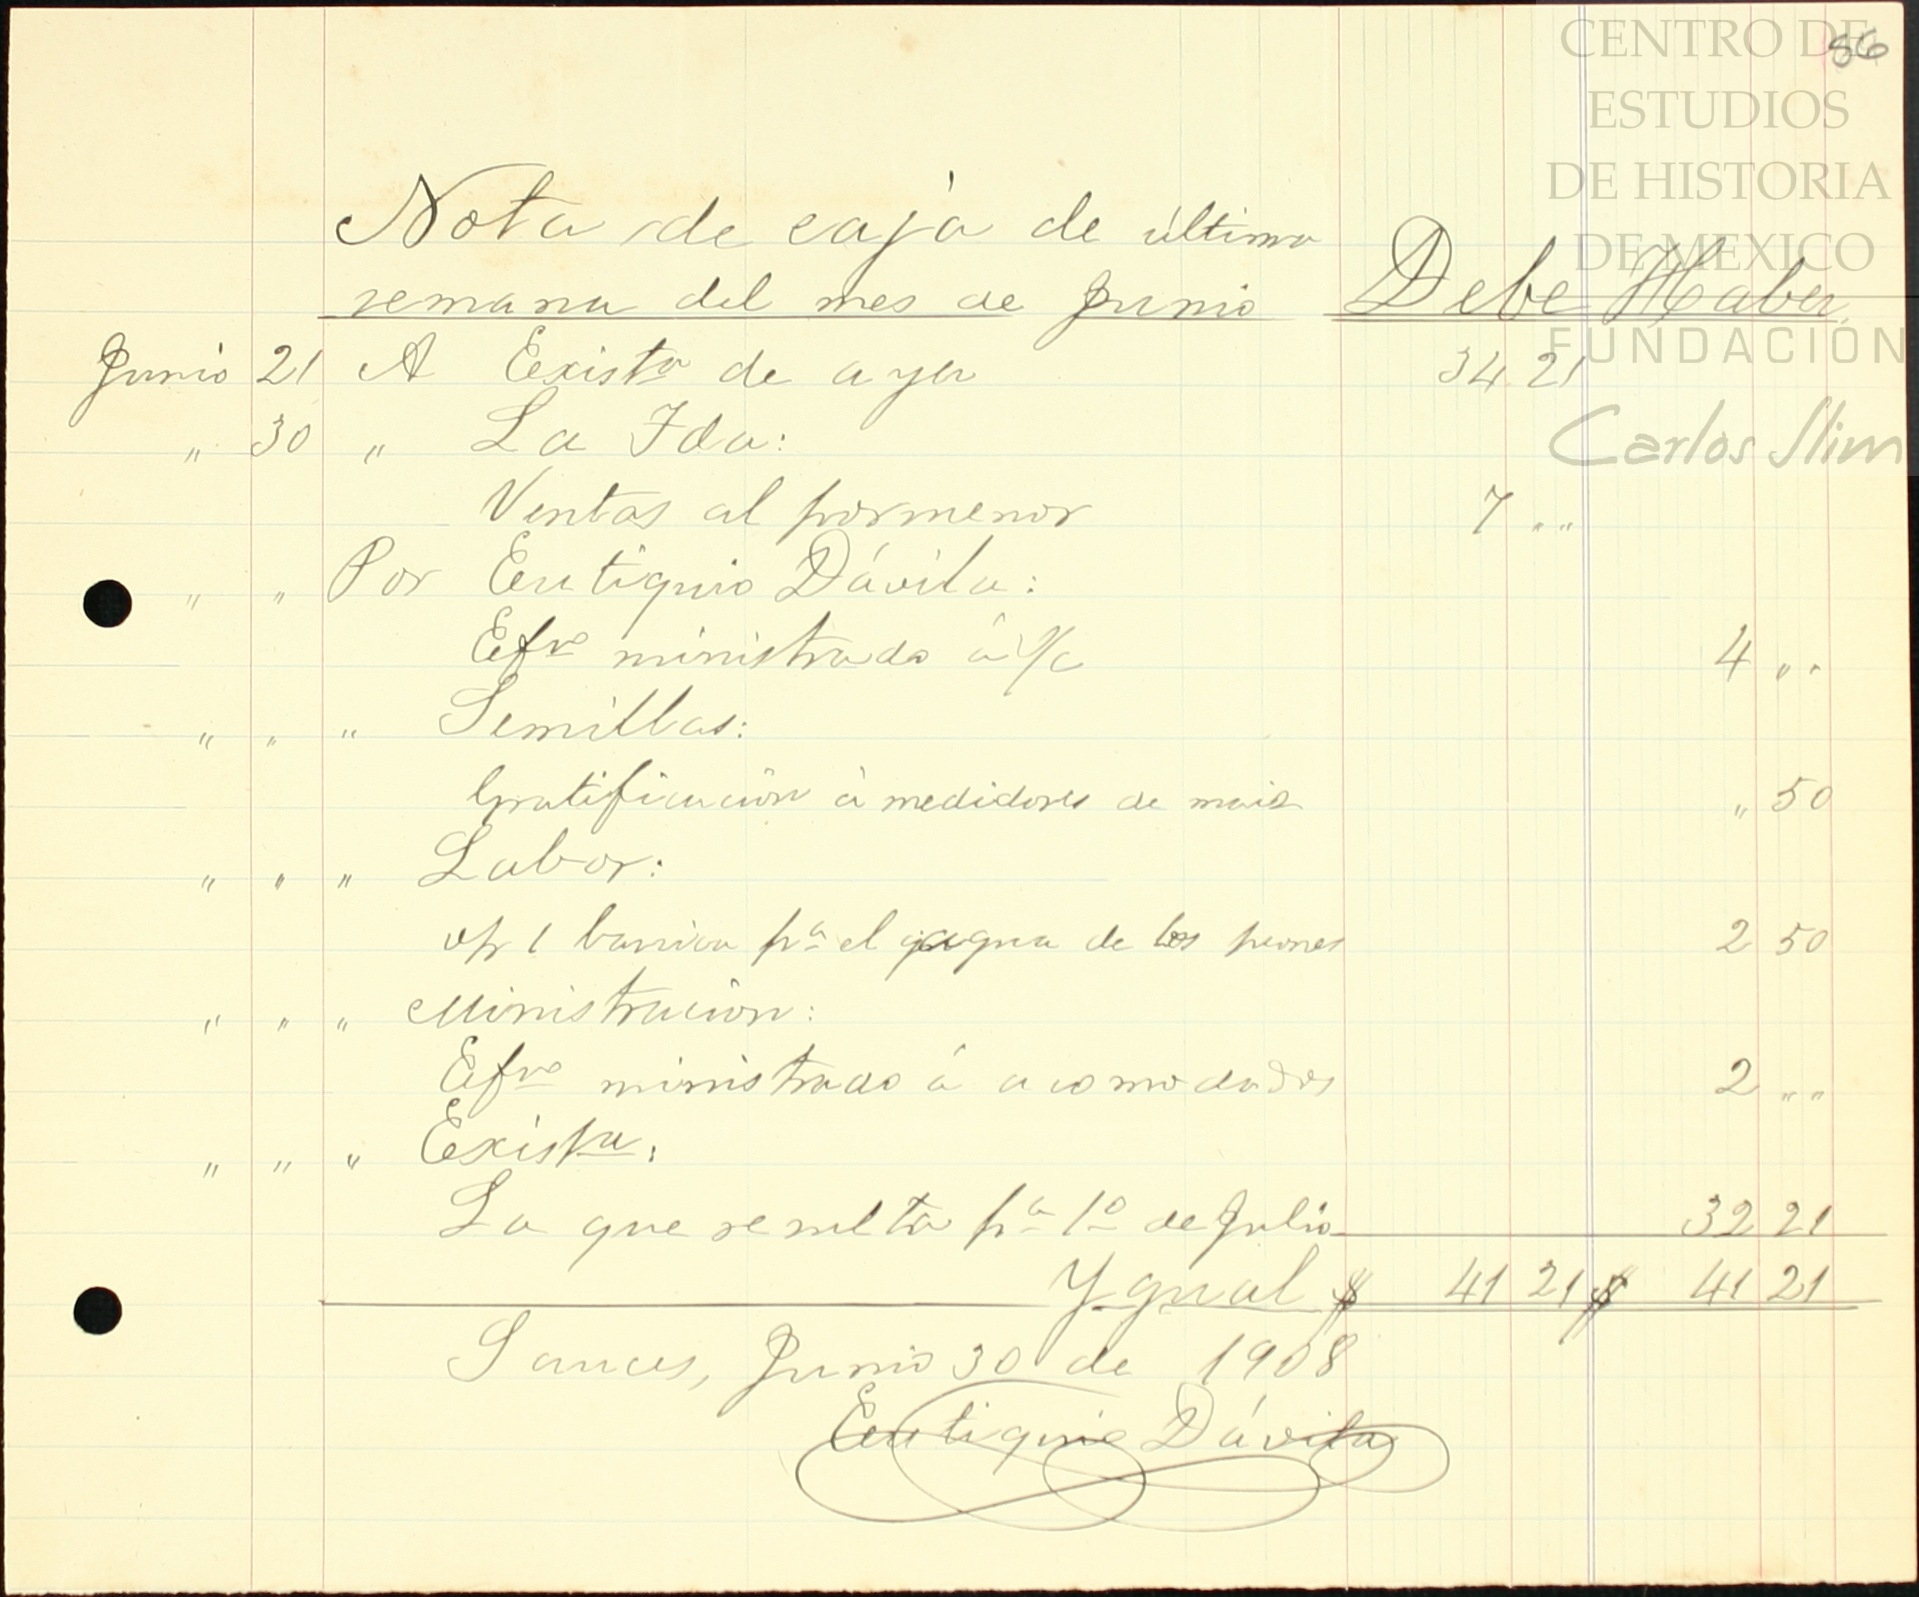 86
CENTRO DE
ESTUDIOS
DE HISTORIA
DE MEXICO
FUNDACIÓN
Carlos Slim
Nota de caja de última
semana del mes de Junio Debe Haber
Junio 21 A Exista de ayer 34 21
" 30 " La Ida:
Ventas al pormenor 7 " "
" " Por Eutiquio Dávila:
Efvo ministrado á s/c 4 " "
" " " Semillas:
Gratificación á medidores de maiz " 50
" " " Labor:
vr 1 barrica pa el agua de los peones 2 50
" " " Ministración:
Efvo ministrado á acomodados 2 " "
" " " Exista:
La que resulta pa 1o de Julio 32 21
Ygual $ 41 21 $ 41 21
Sauces, Junio 30 de 1908
Eutiquio Dávila